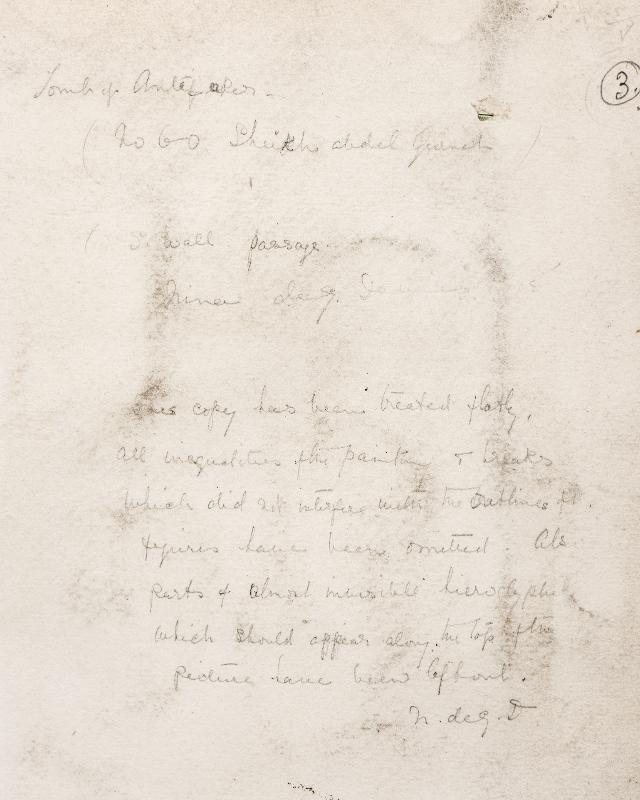 Tomb of Antefoker.
3.
(No 60 Sheikh abdel Gurneh)
(S. wall passage.
Nina de G. Davies
This copy has been treated flatly,
all inequalities of the painting & breaks
which did not interfere with the outlines of
figures have been omitted. Also
parts of almost invisible hieroglyphs
which should appear along the top of the
picture have been left out.
N. de G. D